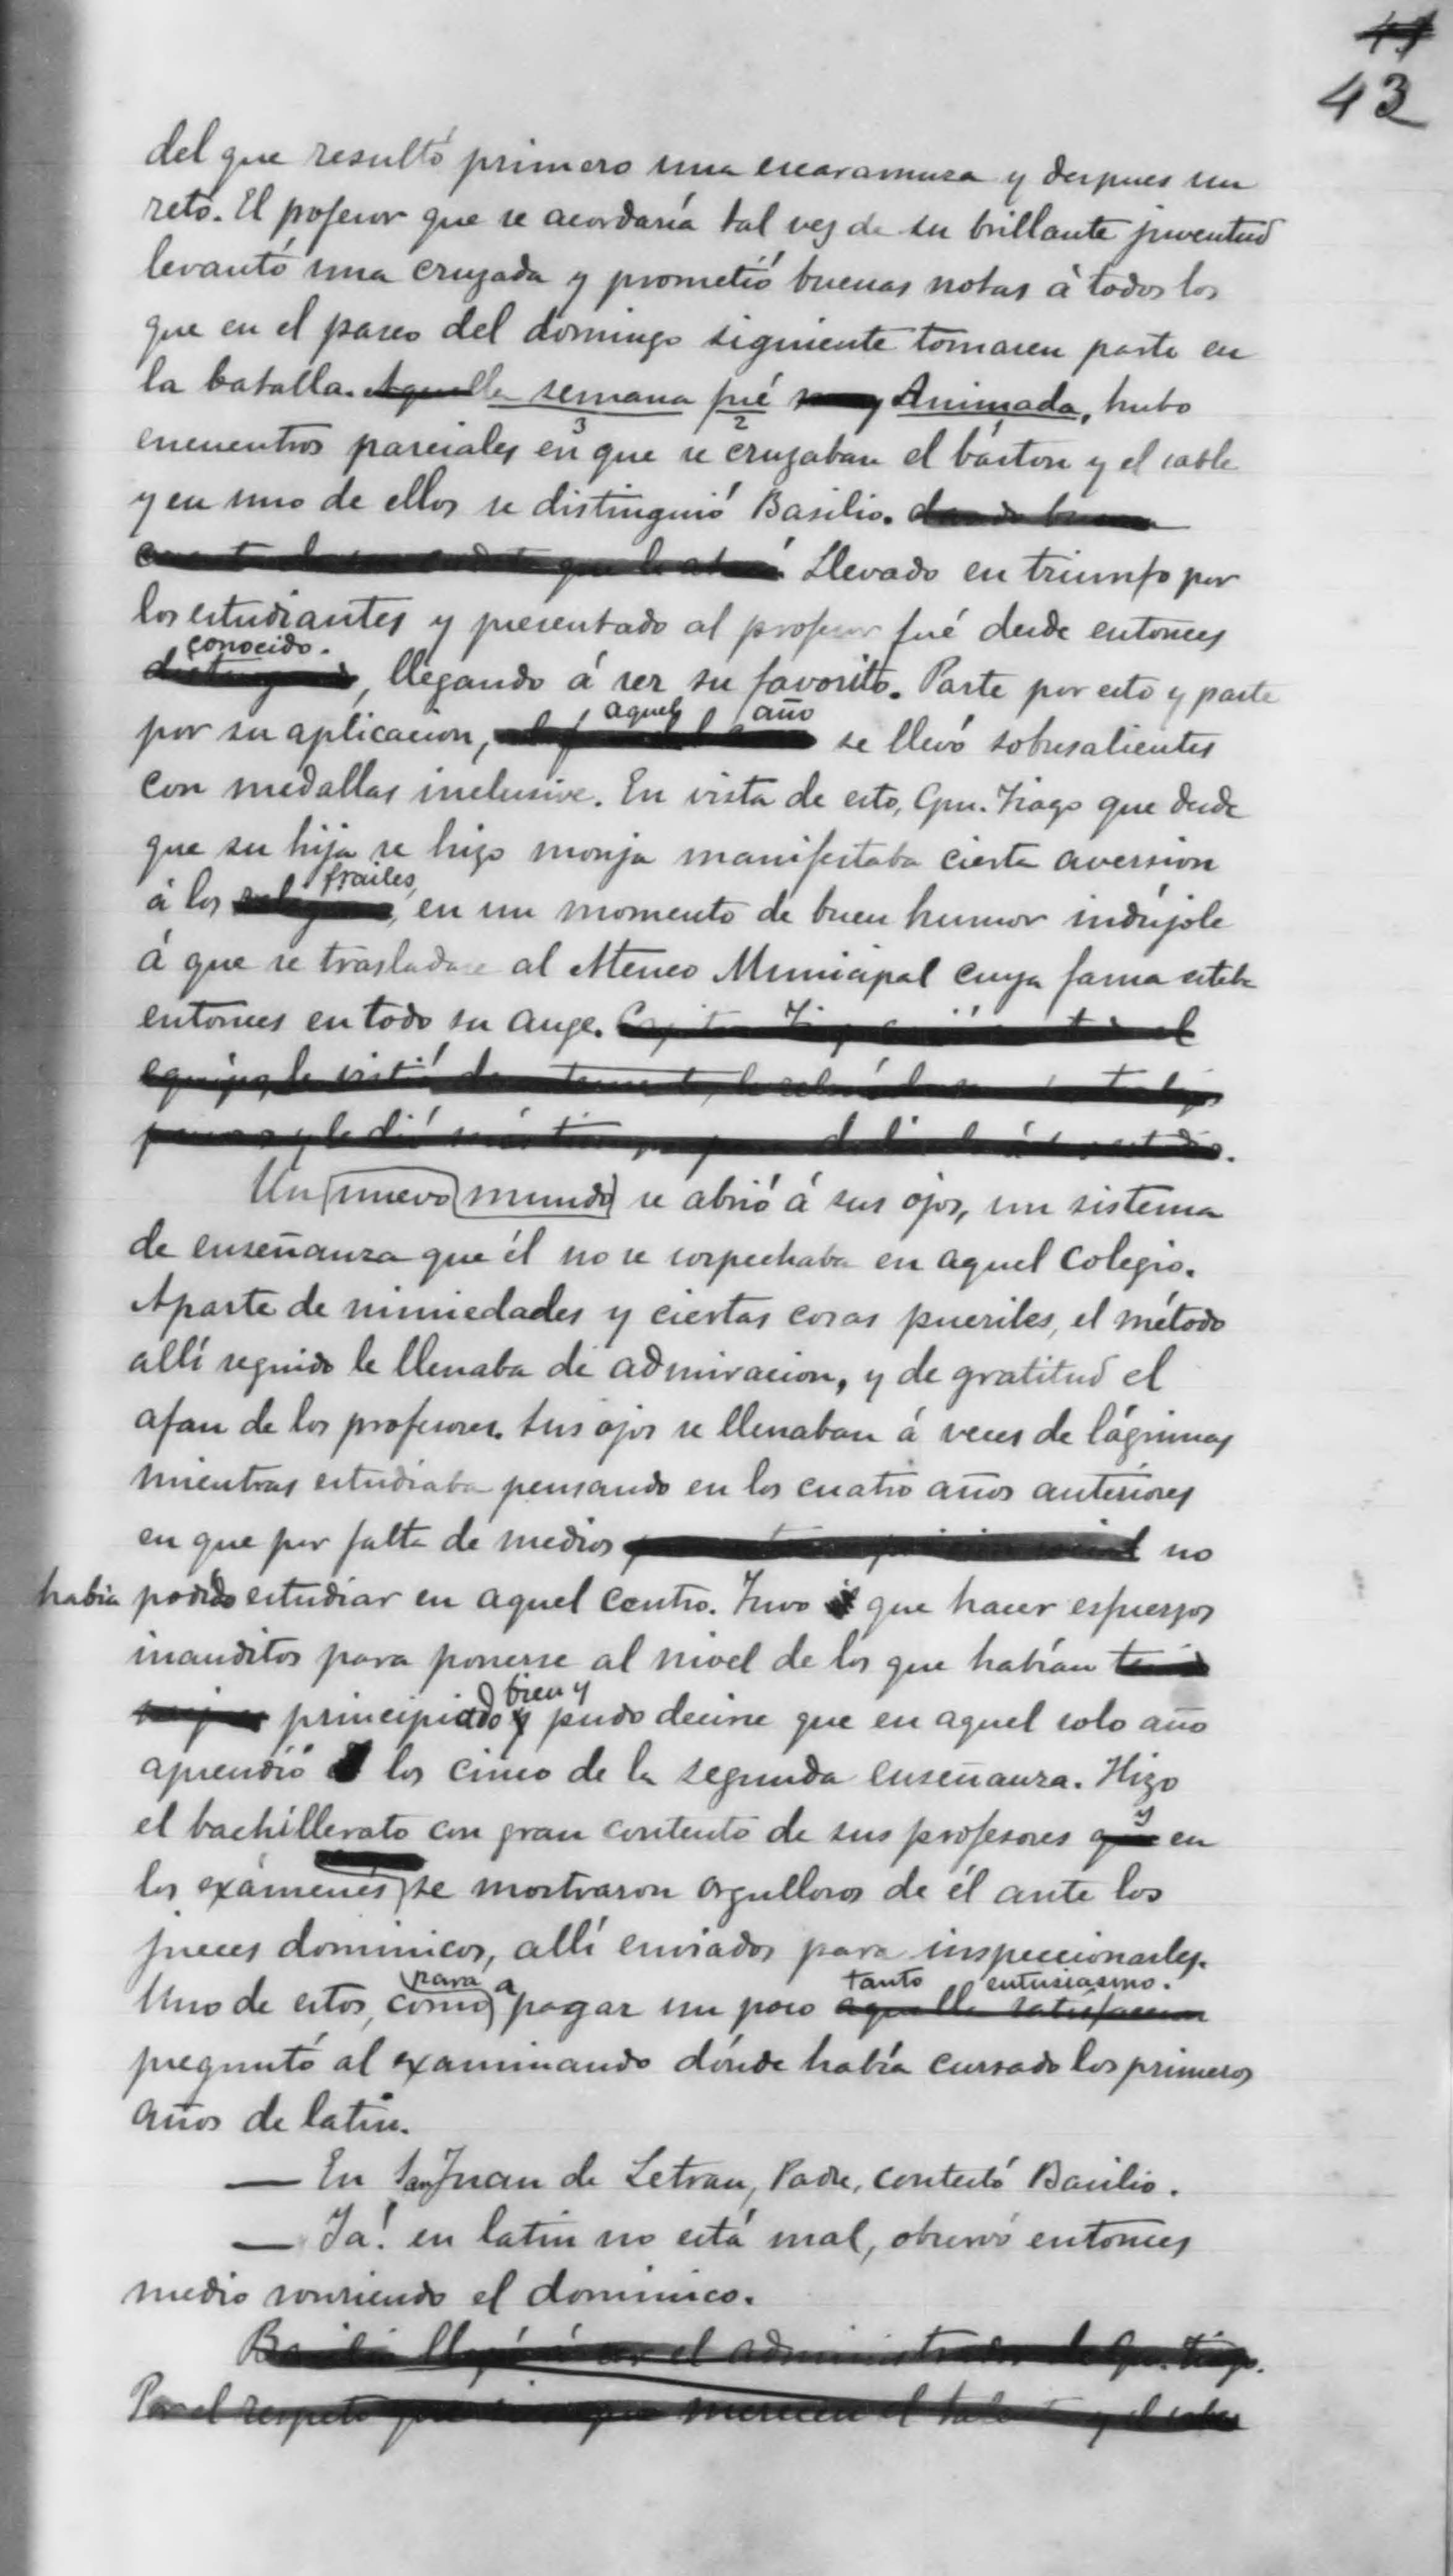 41
43
del que resultó primero una escaramuza y despues un
reto. El pofesor que se acordaría tal vez de su brillante juventud
levantó una cruzada y prometió buenas notas á todos los
que en el paseo del domingo siguiente tomasen parte en
la batalla. Aquella semana fué muy Animada, hubo
3 2 1
encuentros parciales en que se cruzaban el bastón y el sable
y en uno de ellos se distinguió Basilio. dando buena
Llevado en triunfo por
los estudiantes y presentado al profesor fué desde entonces
conocido.
distinguido, llegando á ser su favorito. Parte por esto y parte
aquel año
por su aplicacion, se llevó sobresalientes
con medallas inclusive. En vista de esto, Cpn. Tiago que desde
que su hija se hizo monja manifestaba cierta aversion
frailes,
á los religiosos, en un momento de buen humor indújole
á que se trasladase al Ateneo Municipal cuya fama estaba
entonces en todo su auge. Capitan Tiago
equipo, le vistió
y le dió más
Un nuevo mundo se abrió á sus ojos, un sistema
de enseñanza que él no se sospechaba en aquel colegio.
Aparte de nimiedades y ciertas cosas pueriles, el método
allí seguido le llenaba de admiracion, y de gratitud el
afan de los profesores. Sus ojos se llenaban á veces de lágrimas
mientras estudiaba pensando en los cuatro años anteriores
en que por falta de medios no
habia podido estudiar en aquel centro. Tuvo que hacer esfuerzos
inauditos para ponerse al nivel de los que habían
bien y
principiado y pudo decirse que en aquel solo año
aprendió los cinco de la segunda enseñanza. Hizo
el bachillerato con gran contento de sus profesores que y en
los exámenes se mostraron orgullosos de él ante los
jueces dominicos, allí enviados para inspeccionarles.
para a tanto entusiasmo.
Uno de estos, como pagar un poco aquella satisfaccion
preguntó al examinando dónde había cursado los primeros
años de latin.
— En San Juan de Letran, Padre, contestó Basilio.
— Ya! en latin no está mal, observó entonces
medio sonriendo el dominico.
Basilio llegó á ser el administrador de Cpn. Tiago.
Por el respeto que siempre merecen el talento y el saber